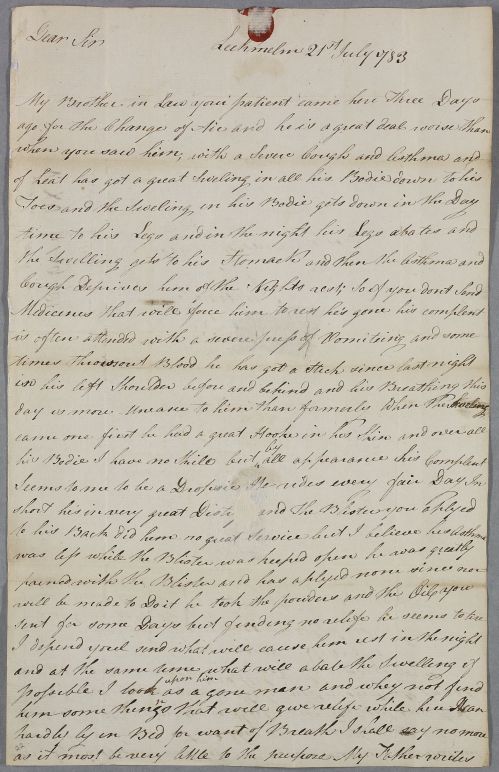 Dear Sir
Lechmelm 21st July 1783
My Brother in Law your patient came here Three Days
ago for the Change of Air and he is a great deal worse than
when you saw him, with a Severe Cough and Asthma and
of Leat has got a great Sweling in all his Bodie down to his
Toes and the Sweling in his Bodie gets down in the Day
time to his Legs and in the night his Legs abates and
the Swelling gets to his Stomach and then the Asthma and
Cough Deprives him of the Nights rest So if you dont Send
Medicenes that will force him to rest he's gone his complent
is often attended with a severe press of Vomiting and some
times throwsout Blood he has got a Stich since last night
in his left Shoulder before and behind and his Breathing this
day is more Uneasie to him than formerlie When the Sweling
came one first he had a great in his Skin and over all
his Bodie I have no Skill but by all appearance his Complent
Seems to me to be a Dropsie He rides every fair Day In
short his in very great and the Blister you aplyed
to his Back did him no great Service but I believe his Asthma
was less while the Blister was keeped open he was greatly
pained with the Blister and has aplyed none since nor
will be made to Doit he took the powders and the Oils you
sent for some Days but finding no relife he seems to
I depend youl send what will cause him rest in the night
and at the same time what will abate the Swelling if
possible I look upon him as a gone man and whey not find
him some things that will give relife while he
hardly ly in Bed for want of Breath I shall say no more
as it most be very little to the purpose My Father writes